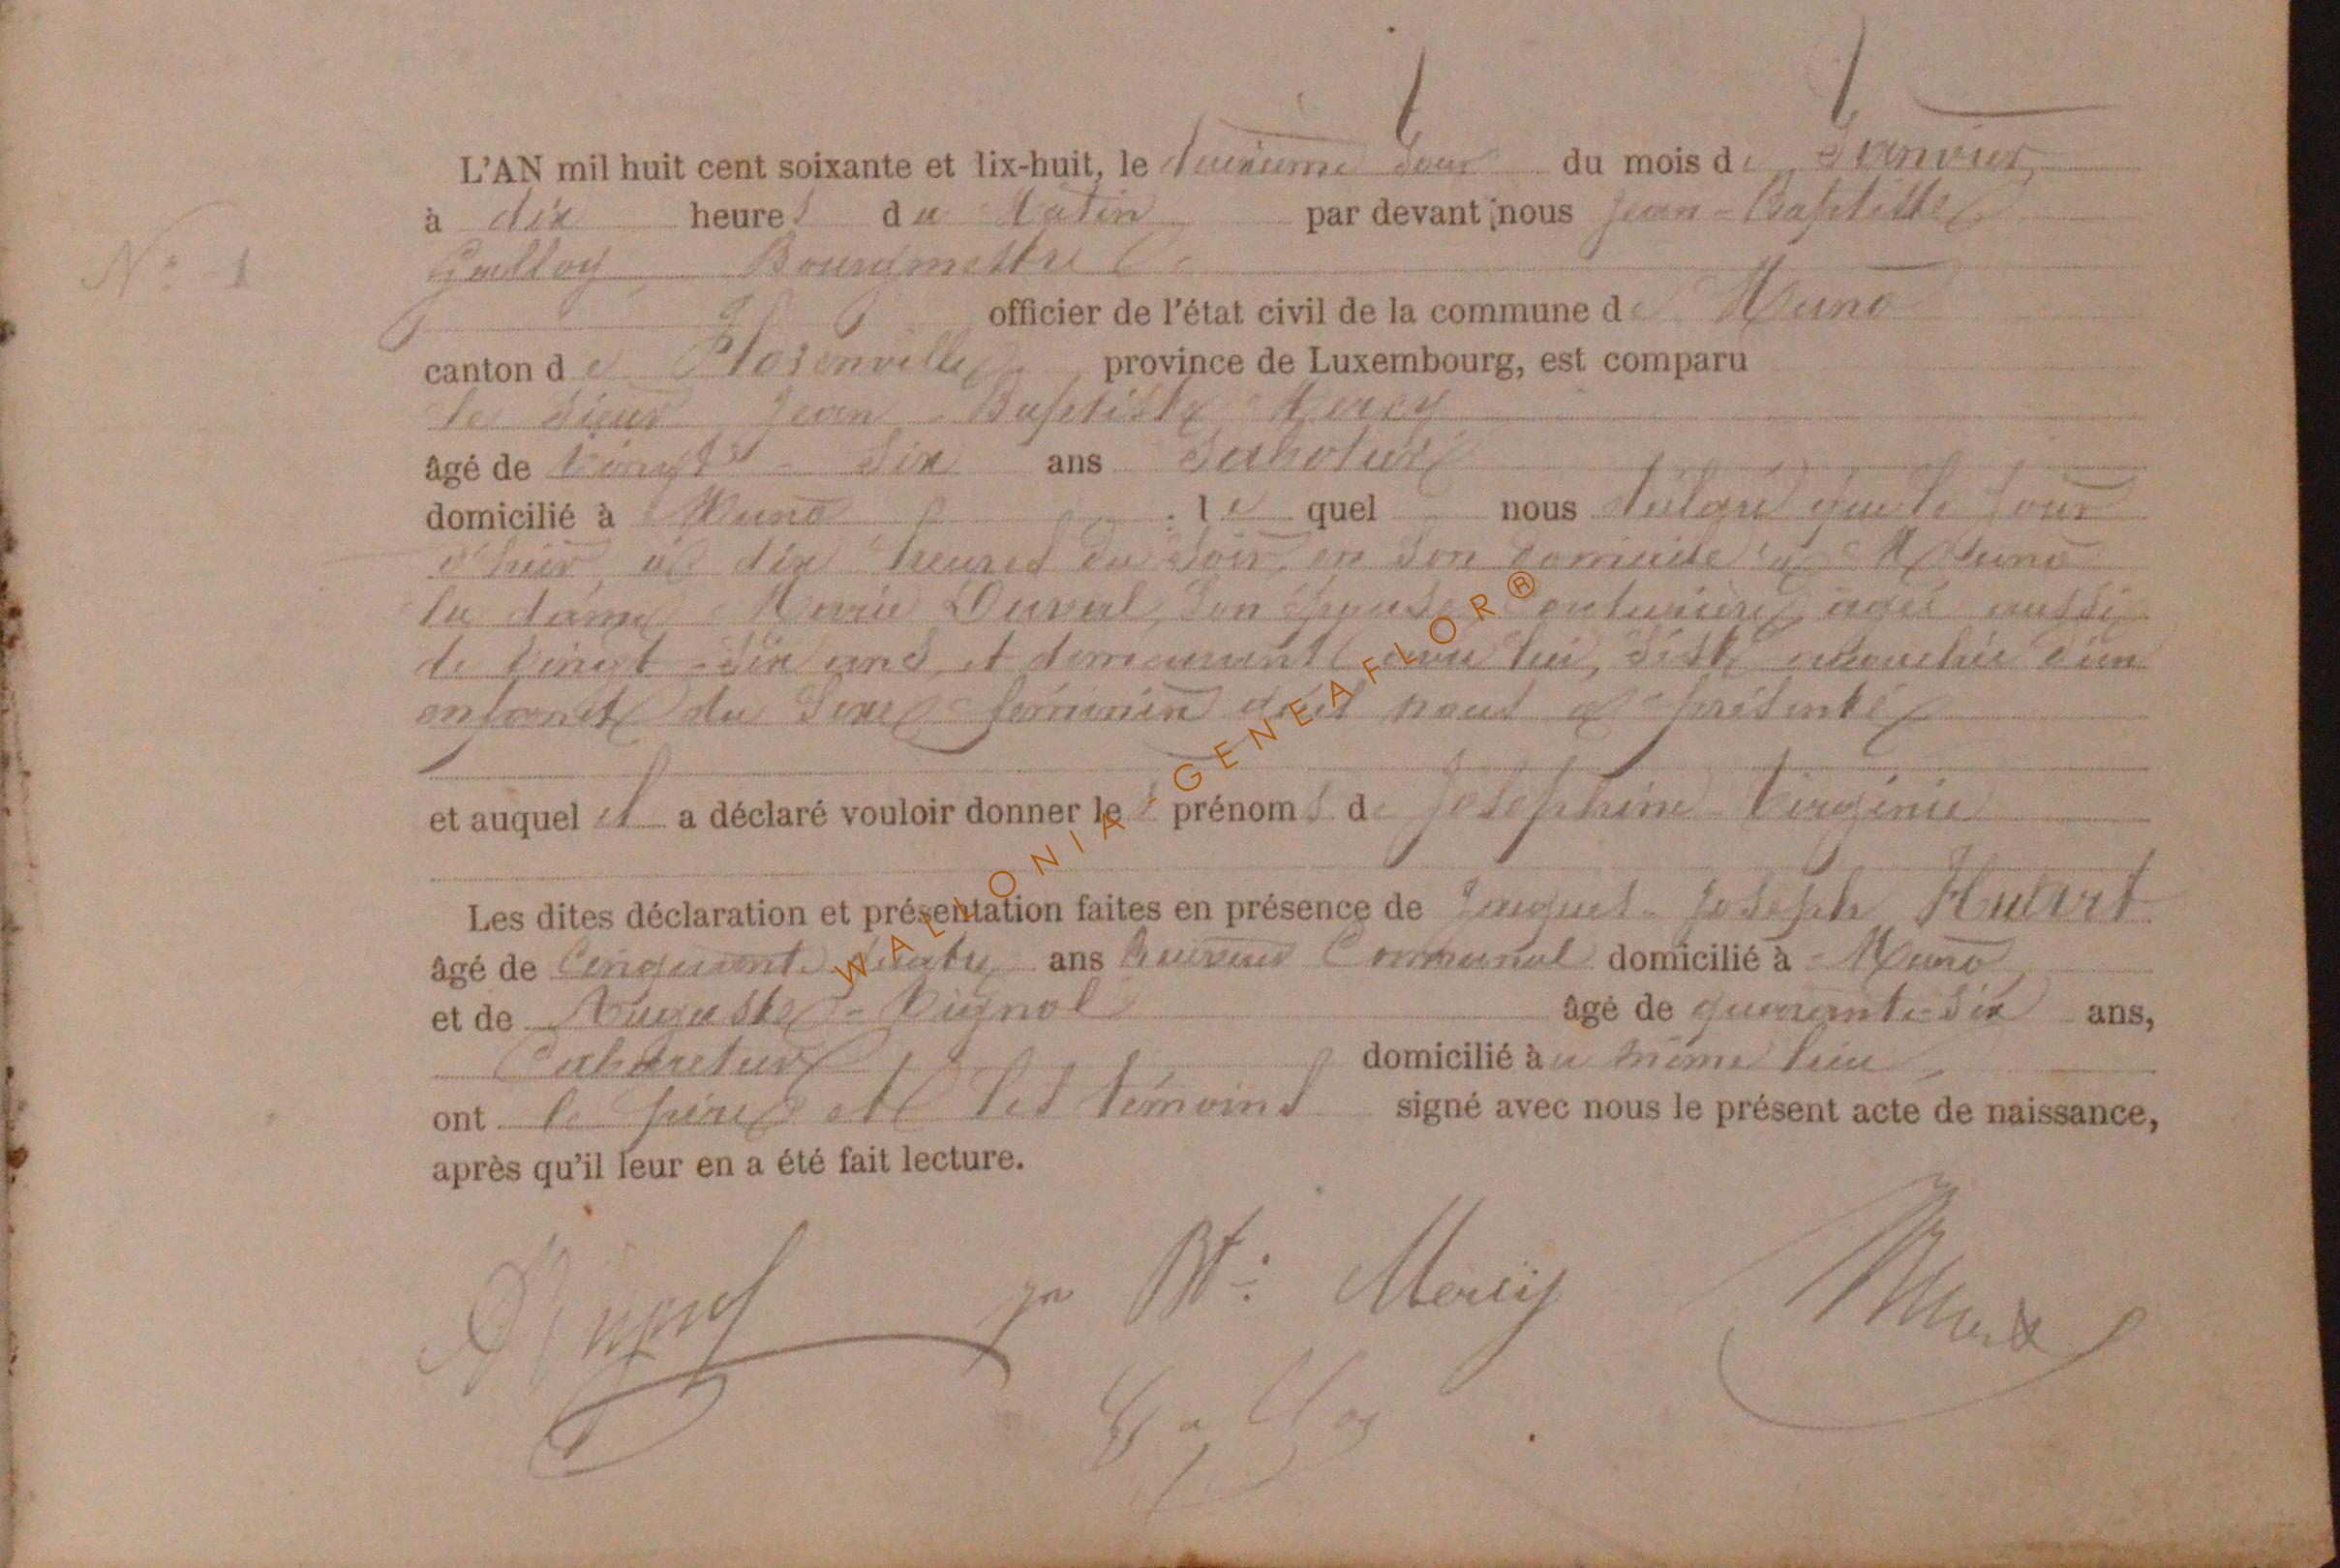 L'AN mil huit cent soixante et dix-huit, le deuxième jour du mois de Janvier
à dix heures du Matin par devant nous Jean-Baptiste
N° 1
Galloy, Bourgmestre
officier de l'état civil de la commune de Muno
canton de Florenville province de Luxembourg, est comparu
le sieur Jean-Baptiste Mercy
âgé de vingt-six ans Sabotier
domicilié à Muno : lequel nous déclaré que le jour
d'hier, à dix heures du soir, en son domicile à Muno
la dame Marie Duval, son épouse, Couturière, âgée aussi
de vingt-six ans, et demeurant avec lui, s'est accouchée d'un
enfant du sexe féminin qu'il nous a présenté
et auquel il a déclaré vouloir donner les prénoms de Joséphine Virginie
Les dites déclaration et présentation faites en présence de Jacques-Joseph Hubert
âgé de cinquante ans Receveur Communal domicilié à Muno
et de Auguste-Pignol âgé de quarante-six ans,
Cabaretier domicilié au même lieu,
ont le père et les témoins signé avec nous le présent acte de naissance,
après qu'il leur en a été fait lecture.
Pignol Jn Bte: Mercÿ
Galloy
WALLONIA - GENEAFLOR®